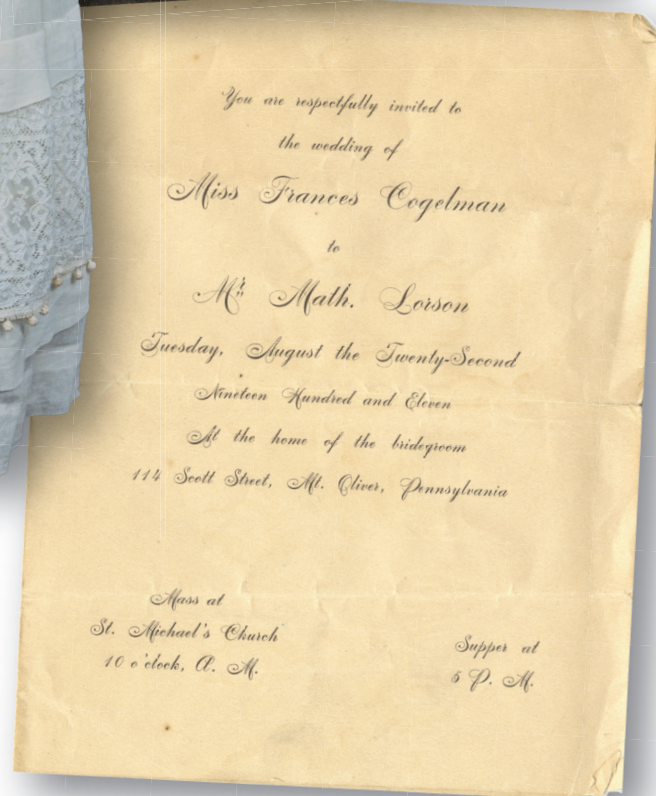 You are respectfully invited to
the wedding of
Miss Frances Cogelman
to
Mr. Math. Lorson
Tuesday, August the Twenty-Second
Nineteen Hundred and Eleven
At the home of the bridegroom
114 Scott Street, Mt. Oliver, Pennsylvania
Mass at
St. Michael's Church
10 o'clock, A. M.
Supper at
5 P. M.